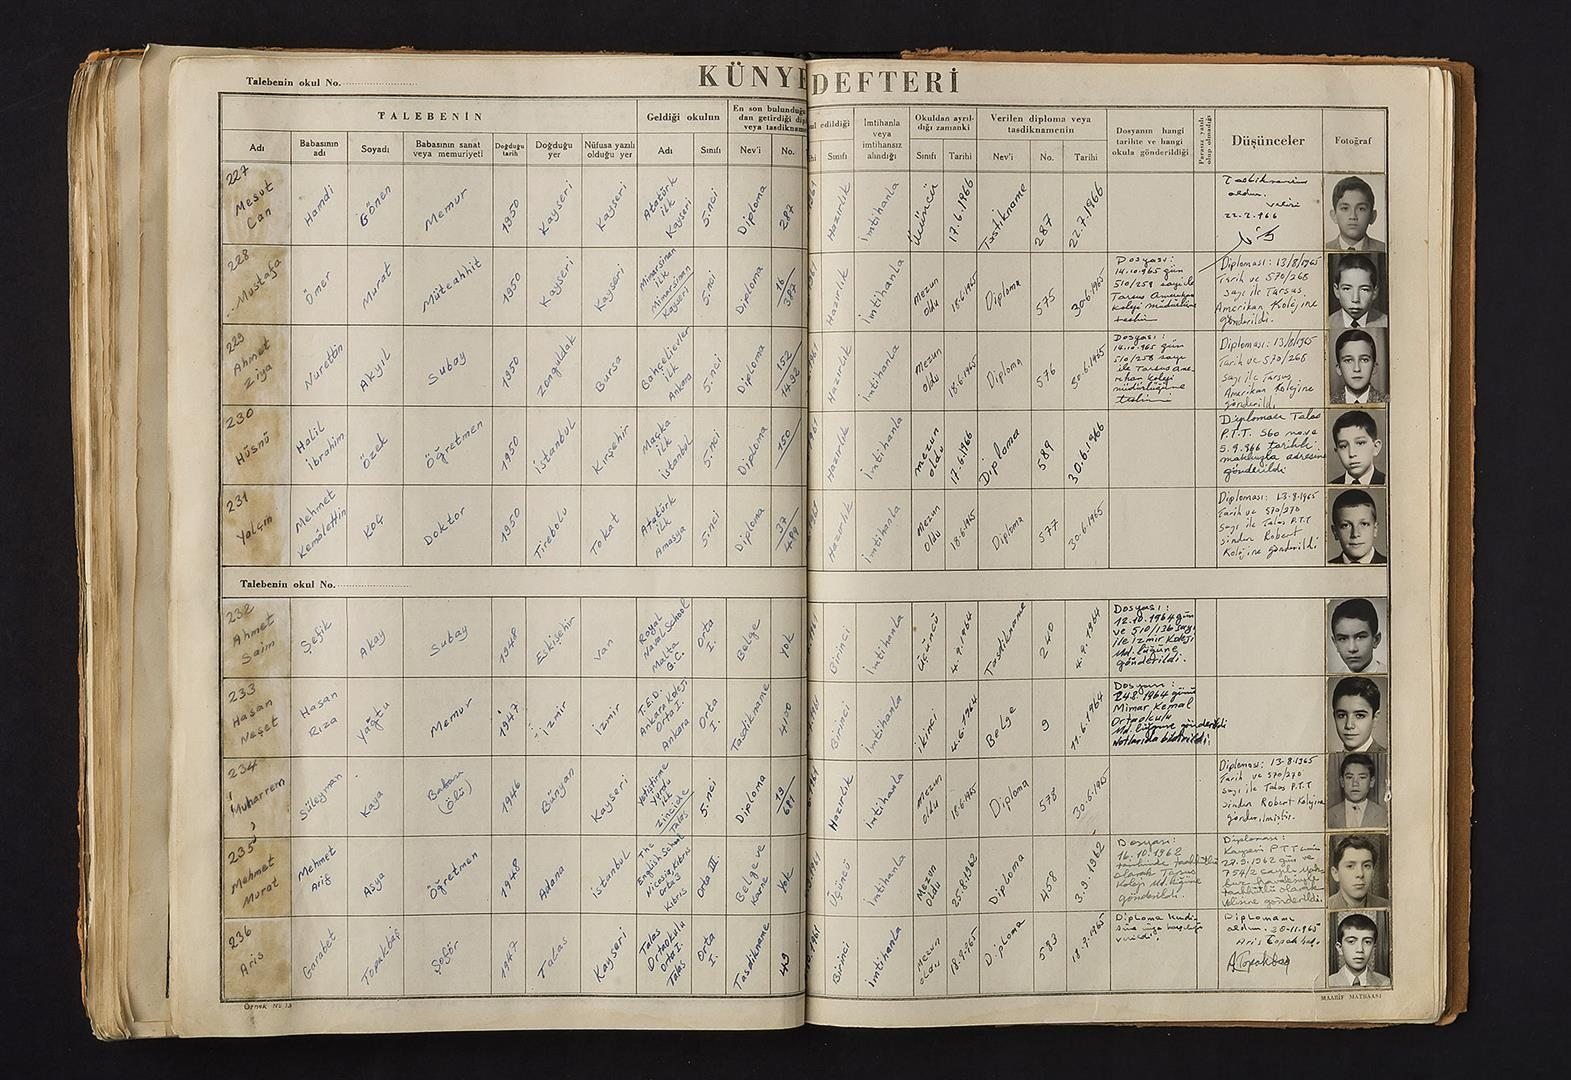 KÜNYE DEFTERİ
Talebenin okul No.
TALEBENİN
Geldiği okulun
En son bulunduğu
dan getirdiği
veya tasdikname
edildiği
İmtihanla
veya
imtihansız
alındığı
Okuldan ayrıl-
dığı zamanki
Verilen diploma veya
tasdiknamenin
Dosyanın hangi
tarihte ve hangi
okula gönderildiği
Parasız yatılı
olup olmadığı
Düşünceler
Fotoğraf
Adı
Babasının
adı
Soyadı
Babasının sanat
veya memuriyeti
Doğduğu
tarih
Doğduğu
yer
Nüfusa yazılı
olduğu yer
Adı
Sınıfı
Nev'i
No.
Sınıfı
Sınıfı
Tarihi
Nev'i
No.
Tarihi
227
Mesut
Can
Hamdi
Gönen
Memur
1950
Kayseri
Kayseri
Atatürk
ilk
Kayseri
5.nci
Diploma
287
Hazırlık
İmtihanla
Üçüncü
17.6.1966
Tastikname
287
22.7.1966
aldım.
Velisi
228
Mustafa
Ömer
Murat
Müteahhit
1950
Kayseri
Kayseri
Mimarsinan
ilk
Mimarsinan
Kayseri
5.nci
Diploma
16
387
Hazırlık
İmtihanla
Mezun
oldu
18.6.1965
Diploma
575
30.6.1965
Dosyası:
14.10.965 gün
510/258 sayı ile
Tarsus Amerikan
Koleji müdürlüğüne
Diploması: 13/8/1965
Tarih ve 570/268
sayı ile Tarsus
Amerikan Kolejine
gönderildi.
229
Ahmet
Ziya
Nurettin
Akyıl
Subay
1950
Zonguldak
Bursa
Bahçelievler
ilk
Ankara
5.nci
Diploma
152
1492
Hazırlık
İmtihanla
Mezun
oldu
18.6.1965
Diploma
576
30.6.1965
Dosyası:
14.10.965 gün
510/258 sayı
ile Tarsus Ame-
rikan Koleji
müdürlüğüne
Diploması: 13/8/1965
Tarih ve 570/268
sayı ile Tarsus
Amerikan Kolejine
gönderildi.
230
Hüsnü
Halil
İbrahim
Özek
Öğretmen
1950
İstanbul
Kırşehir
Maçka
ilk
İstanbul
5.nci
Diploma
150
Hazırlık
İmtihanla
mezun
oldu
17.6.1966
Diploma
589
30.6.1966
Diploması Talas
P.T.T. 560 no ve
5.9.966 tarihli
makbuzla adresine
gönderildi
231
Yalçın
Mehmet
Kemâlettin
Koç
Doktor
1950
Tirebolu
Tokat
Atatürk
ilk
Amasya
5.nci
Diploma
37
489
Hazırlık
İmtihanla
Mezun
oldu
18.6.1965
Diploma
577
30.6.1965
Diploması: 13.8.1965
Tarih ve 570/270
sayı ile Talas P.T.T
sinden Robert
Kolejine gönderildi
Talebenin okul No.
232
Ahmet
Saim
Şefik
Akay
Subay
1948
Eskişehir
Van
Royal
Naval School
Malta
G.C.
Orta
I.
Belge
Yok
Birinci
İmtihanla
Üçüncü
4.9.1964
Tasdikname
240
4.9.1964
Dosyası:
12.10.1964 gün
ve 510/136 sayı
ile İzmir Koleji
Md.lüğüne
gönderildi.
233
Hasan
Neşet
Hasan
Rıza
Yağtu
Memur
1947
İzmir
İzmir
T.E.D.
Ankara Koleji
Orta I.
Ankara
Orta
I.
Tasdikname
400
Birinci
İmtihanla
İkinci
4.6.1964
Belge
9
11.6.1964
Dosyası:
24.8.1964 günü
Mimar Kemal
Ortaokulu
Md.lüğüne gönderildi
234
Muharrem
Süleyman
Kaya
Babası
(ölü)
1946
Bünyan
Kayseri
Yetiştirme
Yurdu
ilk
Zincidere
Talas
5.nci
Diploma
19
681
Hazırlık
İmtihanla
Mezun
oldu
18.6.1965
Diploma
578
30.6.1965
Diploması: 13.8.1965
Tarih ve 570/270
sayı ile Talas P.T.T
sinden Robert Kolejine
gönderilmiştir.
235
Mehmet
Murat
Mehmet
Arif
Asya
Öğretmen
1948
Adana
İstanbul
The
English School
Nicosia, Kıbrıs
Orta 3
Kıbrıs
Orta III.
Belge ve
Karne
Yok
Üçüncü
İmtihanla
Mezun
Oldu
25.8.1962
Diploma
458
3.9.1962
Dosyası:
16.10.1962
tarihinde taahhütlü
olarak Tarsus
Koleji Md.lüğüne
gönderildi.
Diploması:
Kayseri PTT
27.9.1962 gün ve
754/2 sayılı
taahhütlü olarak
velisine gönderildi.
236
Aris
Garabet
Topakbaş
Şoför
1947
Talas
Kayseri
Talas
Ortaokulu
Orta I.
Talas
Orta
I.
Tasdikname
49
Birinci
İmtihanla
Mezun
oldu
18.9.1965
Diploma
583
18.9.1965
Diploma kendi-
sine imza karşılığı
verildi.
Diplomamı
aldım. 30-11.965
Aris Topakbaş.
ATopakbaş
Örnek No 13
MAARİF MATBAASI